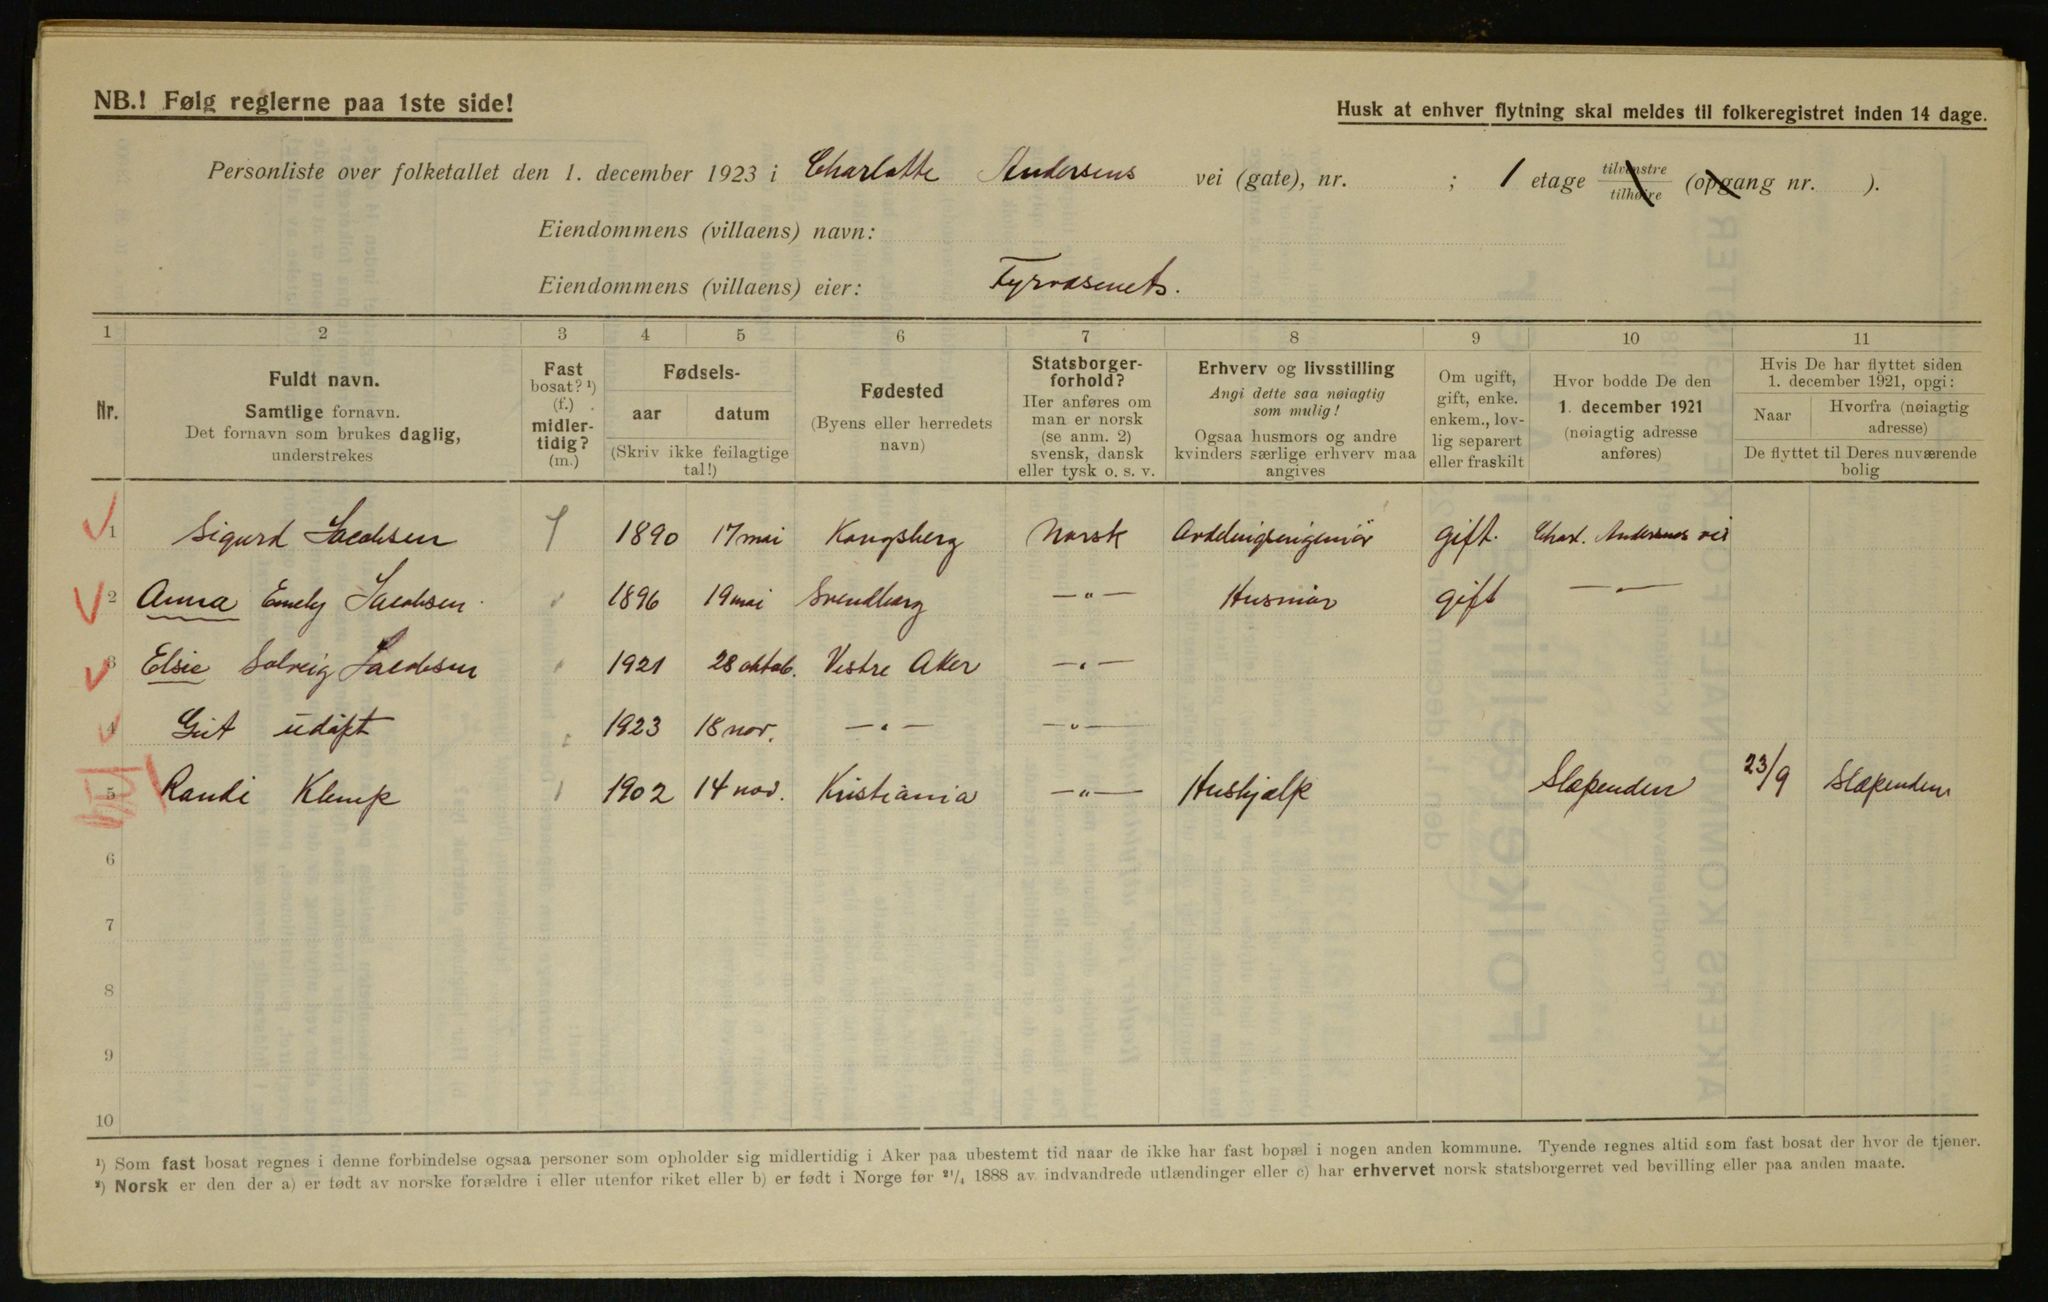 NB.! Følg reglerne paa 1ste side!
Husk at enhver flytning skal meldes til folkeregistret inden 14 dage.
Personliste over folketallet den 1. december 1923 i Charlotte Andersens vei (gate), nr. ; 1 etage tilvenstre tilhøire (opgang nr. ).
Eiendommens (villaens) navn:
Eiendommens (villaens) eier:
1 2 3 4 5 6 7 8 9 10 11
Nr.
Fuldt navn.
Samtlige fornavn.
Det fornavn som brukes daglig,
understrekes
Fast
bosat? ¹)
(f.)
midler-
tidig?
(m.)
Fødsels-
aar datum
(Skriv ikke feilagtige
tal!)
Fødested
(Byens eller herredets
navn)
Statsborger-
forhold?
Her anføres om
man er norsk
(se anm. 2)
svensk, dansk
eller tysk o. s. v.
Erhverv og livsstilling
Angi dette saa nøiagtig
som mulig!
Ogsaa husmors og andre
kvinders særlige erhverv maa
angives
Om ugift,
gift, enke.
enkem., lov-
lig separert
eller fraskilt
Hvor bodde De den
1. december 1921
(nøiagtig adresse
anføres)
Hvis De har flyttet siden
1. december 1921, opgi:
Naar
Hvorfra (nøiagtig
adresse)
De flyttet til Deres nuværende
bolig
1 Sigurd Jacobsen f 1890 17 mai Kongsberg Norsk Avdelingsingeniør gift. Charl. Andersens vei
2 Anna Emely Jacobsen 1896 19 mai Svendborg —"— Husmor gift —"—
3 Elsie Solveig Jacobsen 1921 28 oktob. Vestre Aker —"—
4 Gut udøpt 1923 18 nov. —"— —"—
5 Randi Klemp 1902 14 nov. Kristiania —"— Hushjælp Slæpenden 23/9 Slæpenden
6
7
8
9
10
¹) Som fast bosat regnes i denne forbindelse ogsaa personer som opholder sig midlertidig i Aker paa ubestemt tid naar de ikke har fast bopæl i nogen anden kommune. Tyende regnes altid som fast bosat der hvor de tjener.
²) Norsk er den der a) er født av norske forældre i eller utenfor riket eller b) er født i Norge før ²¹/₄ 1888 av indvandrede utlændinger eller c) har erhvervet norsk statsborgerret ved bevilling eller paa anden maate.